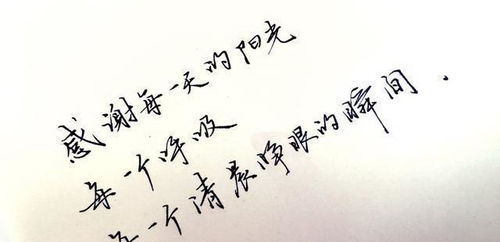 感谢每一天的阳光
每一个呼吸
每一个清晨睁眼的瞬间.